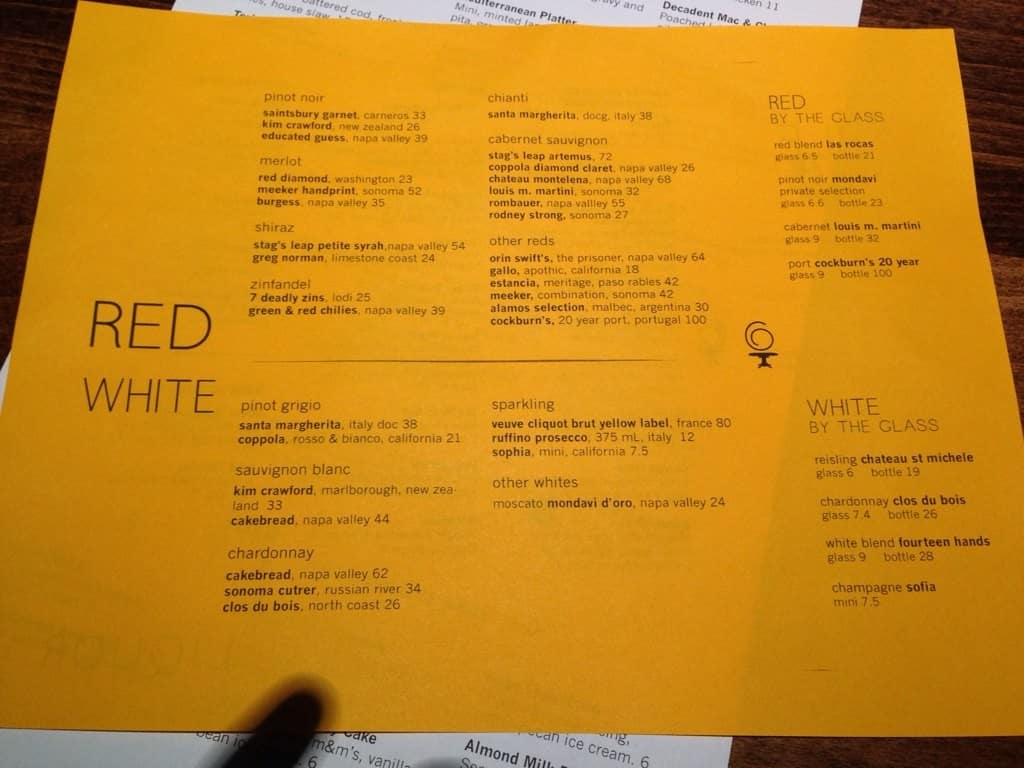 battered cod, 
house slaw
Mediterranean Platter
Mini, minted
pita,
gravy and
chicken 11
Decadent Mac &
Poached
RED
pinot noir
saintsbury garnet, carneros 33
kim crawford, new zealand 26
educated guess, napa valley 39
merlot
red diamond, washington 23
meeker handprint, sonoma 52
burgess, napa valley 35
shiraz
stag's leap petite syrah,napa valley 54
greg norman, limestone coast 24
zinfandel
7 deadly zins, lodi 25
green & red chilies, napa valley 39
chianti
santa margherita, docg, italy 38
cabernet sauvignon
stag's leap artemus, 72
coppola diamond claret, napa valley 26
chateau montelena, napa valley 68
louis m. martini, sonoma 32
rombauer, napa vallley 55
rodney strong, sonoma 27
other reds
orin swift's, the prisoner, napa valley 64
gallo, apothic, california 18
estancia, meritage, paso rables 42
meeker, combination, sonoma 42
alamos selection, malbec, argentina 30
cockburn's, 20 year port, portugal 100
RED
BY THE GLASS
red blend las rocas
glass 6.5 bottle 21
pinot noir mondavi
private selection
glass 6.6 bottle 23
cabernet louis m. martini
glass 9 bottle 32
port cockburn's 20 year
glass 9 bottle 100
WHITE
pinot grigio
santa margherita, italy doc 38
coppola, rosso & bianco, california 21
sauvignon blanc
kim crawford, marlborough, new zea-
land 33
cakebread, napa valley 44
chardonnay
cakebread, napa valley 62
sonoma cutrer, russian river 34
clos du bois, north coast 26
sparkling
veuve cliquot brut yellow label, france 80
ruffino prosecco, 375 mL, italy 12
sophia, mini, california 7.5
other whites
moscato mondavi d'oro, napa valley 24
WHITE
BY THE GLASS
reisling chateau st michele
glass 6 bottle 19
chardonnay clos du bois
glass 7.4 bottle 26
white blend fourteen hands
glass 9 bottle 28
champagne sofia
mini 7.5
LIQUOR
Cake
bean
m&m's, vanilla
6
pecan ice cream. 6
Almond Milk